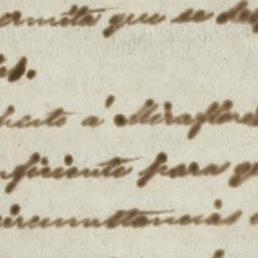 ermita que se des
les.
hesto á Miraflores
ficiente para qu
circunstancias